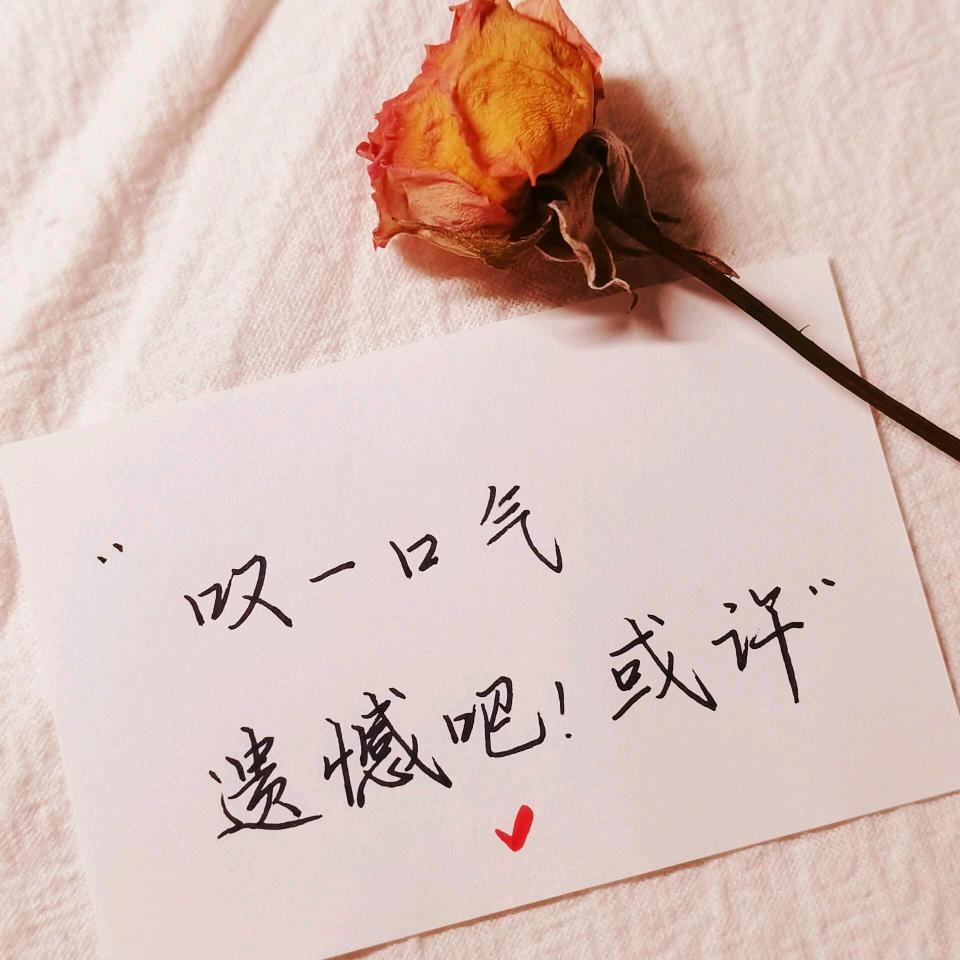 “叹一口气
遗憾吧!或许”